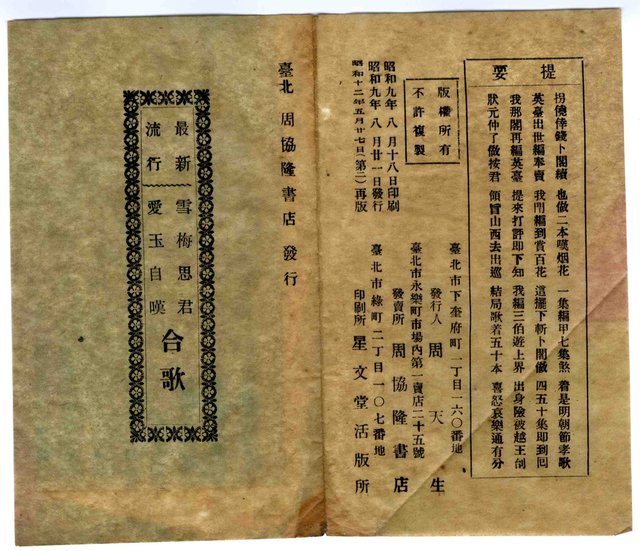 提要
拐僥倖錢卜閣續 也做二本嘆烟花 一集編甲七集煞 着是明朝節孝歌
英臺出世編奉賣 我門編到賞百花 這擺下斬卜閣做 四五十集即到囘
我那閣再編英臺 提來打評即下知 我編三伯遊上界 出身險被越王刣
狀元仲了做按君 領旨山西去出巡 結局歌着五十本 喜怒哀樂通有分
版權所有
不許複製
昭和九年八月十八日印刷
昭和九年八月廿一日發行
昭和十二年五月廿七日(第二)再版
臺北市下奎府町一丁目一六〇番地
發行人 周天生
臺北市永樂町市場內第一賣店二十五號
發賣所 周協隆書店
臺北市綠町二丁目一〇七番地
印刷所 星文堂活版所
臺北 周協隆書店 發行
最新 雪梅思君
流行 愛玉自嘆
合歌